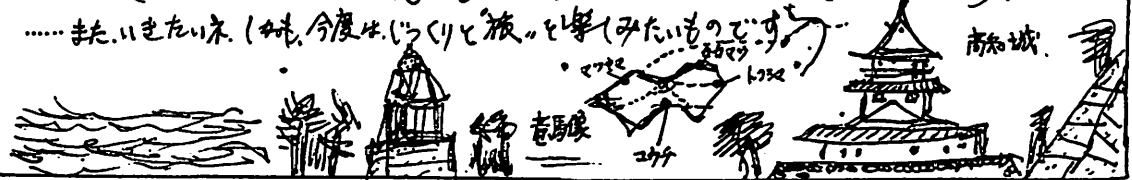 ……また、いきたいネ.しかも、今度は、じっくりと“旅”を楽しみたいものです。
高知城.
マツヤマ
高マツ
トクシマ
竜馬像
コウチ